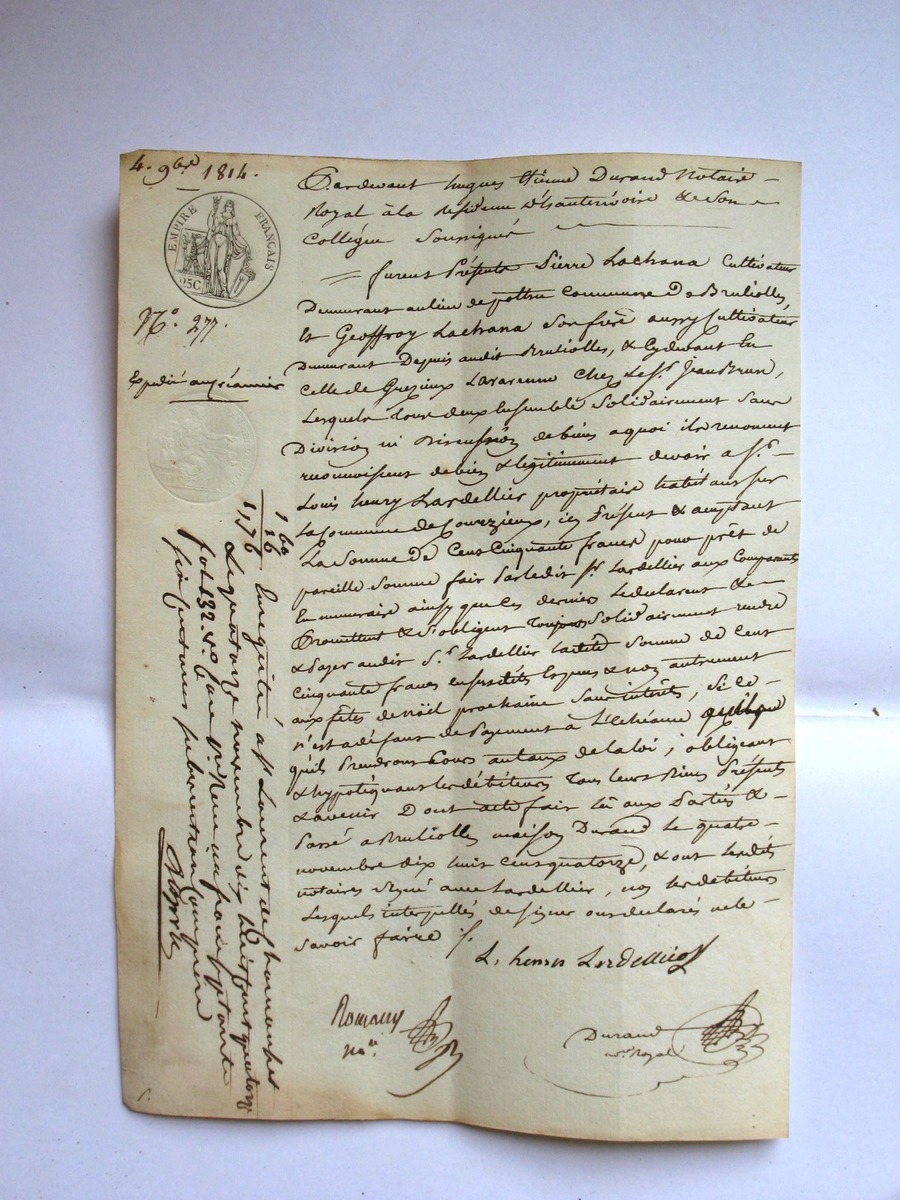 4. 9bre 1814.
EMPIRE FRANÇAIS
25C
N° 277.
Expédié au créancier
Pardevant hugues Etienne Durand Notaire
Royal à la résidence d'hauterivoire & Son
Collègue Soussignés
furent Présents Pierre Lachana Cultivateur
Demeurant au lieu de pottru Commune De Brulioles,
Et Geoffroy Lachana Son frère aussy Cultivateur
Demeurant Depuis audit Brulioles, & Cydevant En
Celle de Grezieux Lavarenne Chez Le Sr. Jean Brun,
Lesquels tous deux Ensemble Solidairement Sans
Division ni Discussion de biens a quoi ils renoncent
reconnoissent debien & légitimement devoir a Sr.
Louis henry Lardellier propriétaire habitant sur
La Commune de Courzieux, icy Présent & acceptant
La Somme De Cent Cinquante francs pour prêt de
pareille Somme fait Par ledit Sr. Lardellier aux Comparants
En numéraire ainsy que Ces derniers le déclarent &
Promettent & S'obligent Toujours Solidairement rendre
& Payer audit Sr. Lardellier ladite Somme de Cent
Cinquante francs en susdites Espèces & non autrement
aux fêtes de noël prochaine Sans intérêts, Si Ce
n'est a défaut de Payement à L'échéance
qu'ils Prendront Cours au taux de la loi, obligeant
& hypotéquant les débiteurs Tous leurs Biens Présents
& avenir Dont acte fait lû aux Parties &
Passé a Brulioles maison Durand Le quatre
novembre dix huit Cent quatorze, & ont lesdits
notaires signé avec Lardellier, non les débiteurs
Lesquels interpellés de signer ont déclarés ne le
Savoir faire /.
L. henry Lardellier
Romany
nre.
Durand
nre. Royal
1 60
16
1,76
Enregistré a St Laurent de chamousset
Le quatorze novembre dix huit cent quatorze
fol. 132 Vo Case